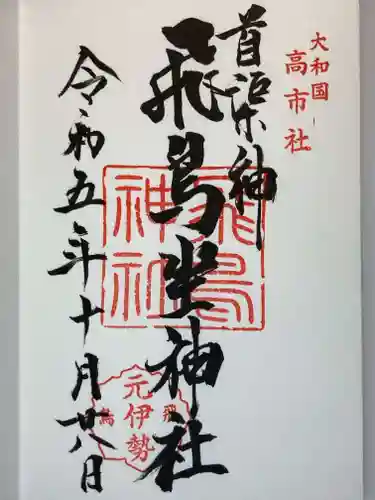 大和国
高市社
首渠神
飛鳥坐神社
飛鳥神社
元伊勢
飛鳥
令和五年十月廿八日